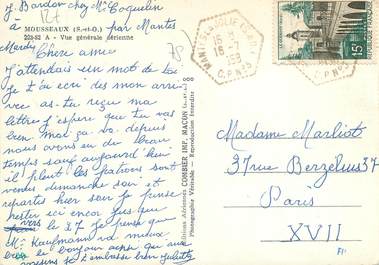 J. Bardon chez Mr Coquelin
MOUSSEAUX (S.-et-O.) par Mantes
223-52 A - Vue générale aérienne
Mardi Chère amie
J'attendais un mot de toi
je t'ai écri des mon arri
vée as-tu reçu ma
lettre j'espère que tu vas
bien moi ça va. depuis
nous avons eu du beau
temps sauf aujourd'hui
il pleut les patrons sont
venus dimanche soir et
repartis hier soir je pense
rester ici encore jusque
vers le 27 je pense que
Mr Kaufmann va mieux
le bonjour ainsi qu'aux
je t'embrasse bien Juliette
Editions Aériennes COMBIER IMP. MACON
Photographie Véritable - Reproduction Interdite
MANTES-LA-JOLIE
C.P. N°5
15F
Madame Marliot
37 rue Berzélius 37
Paris
XVII